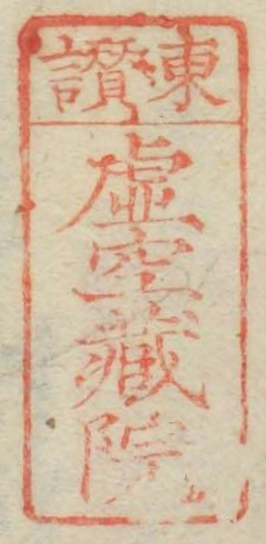 東讃
虚空藏院